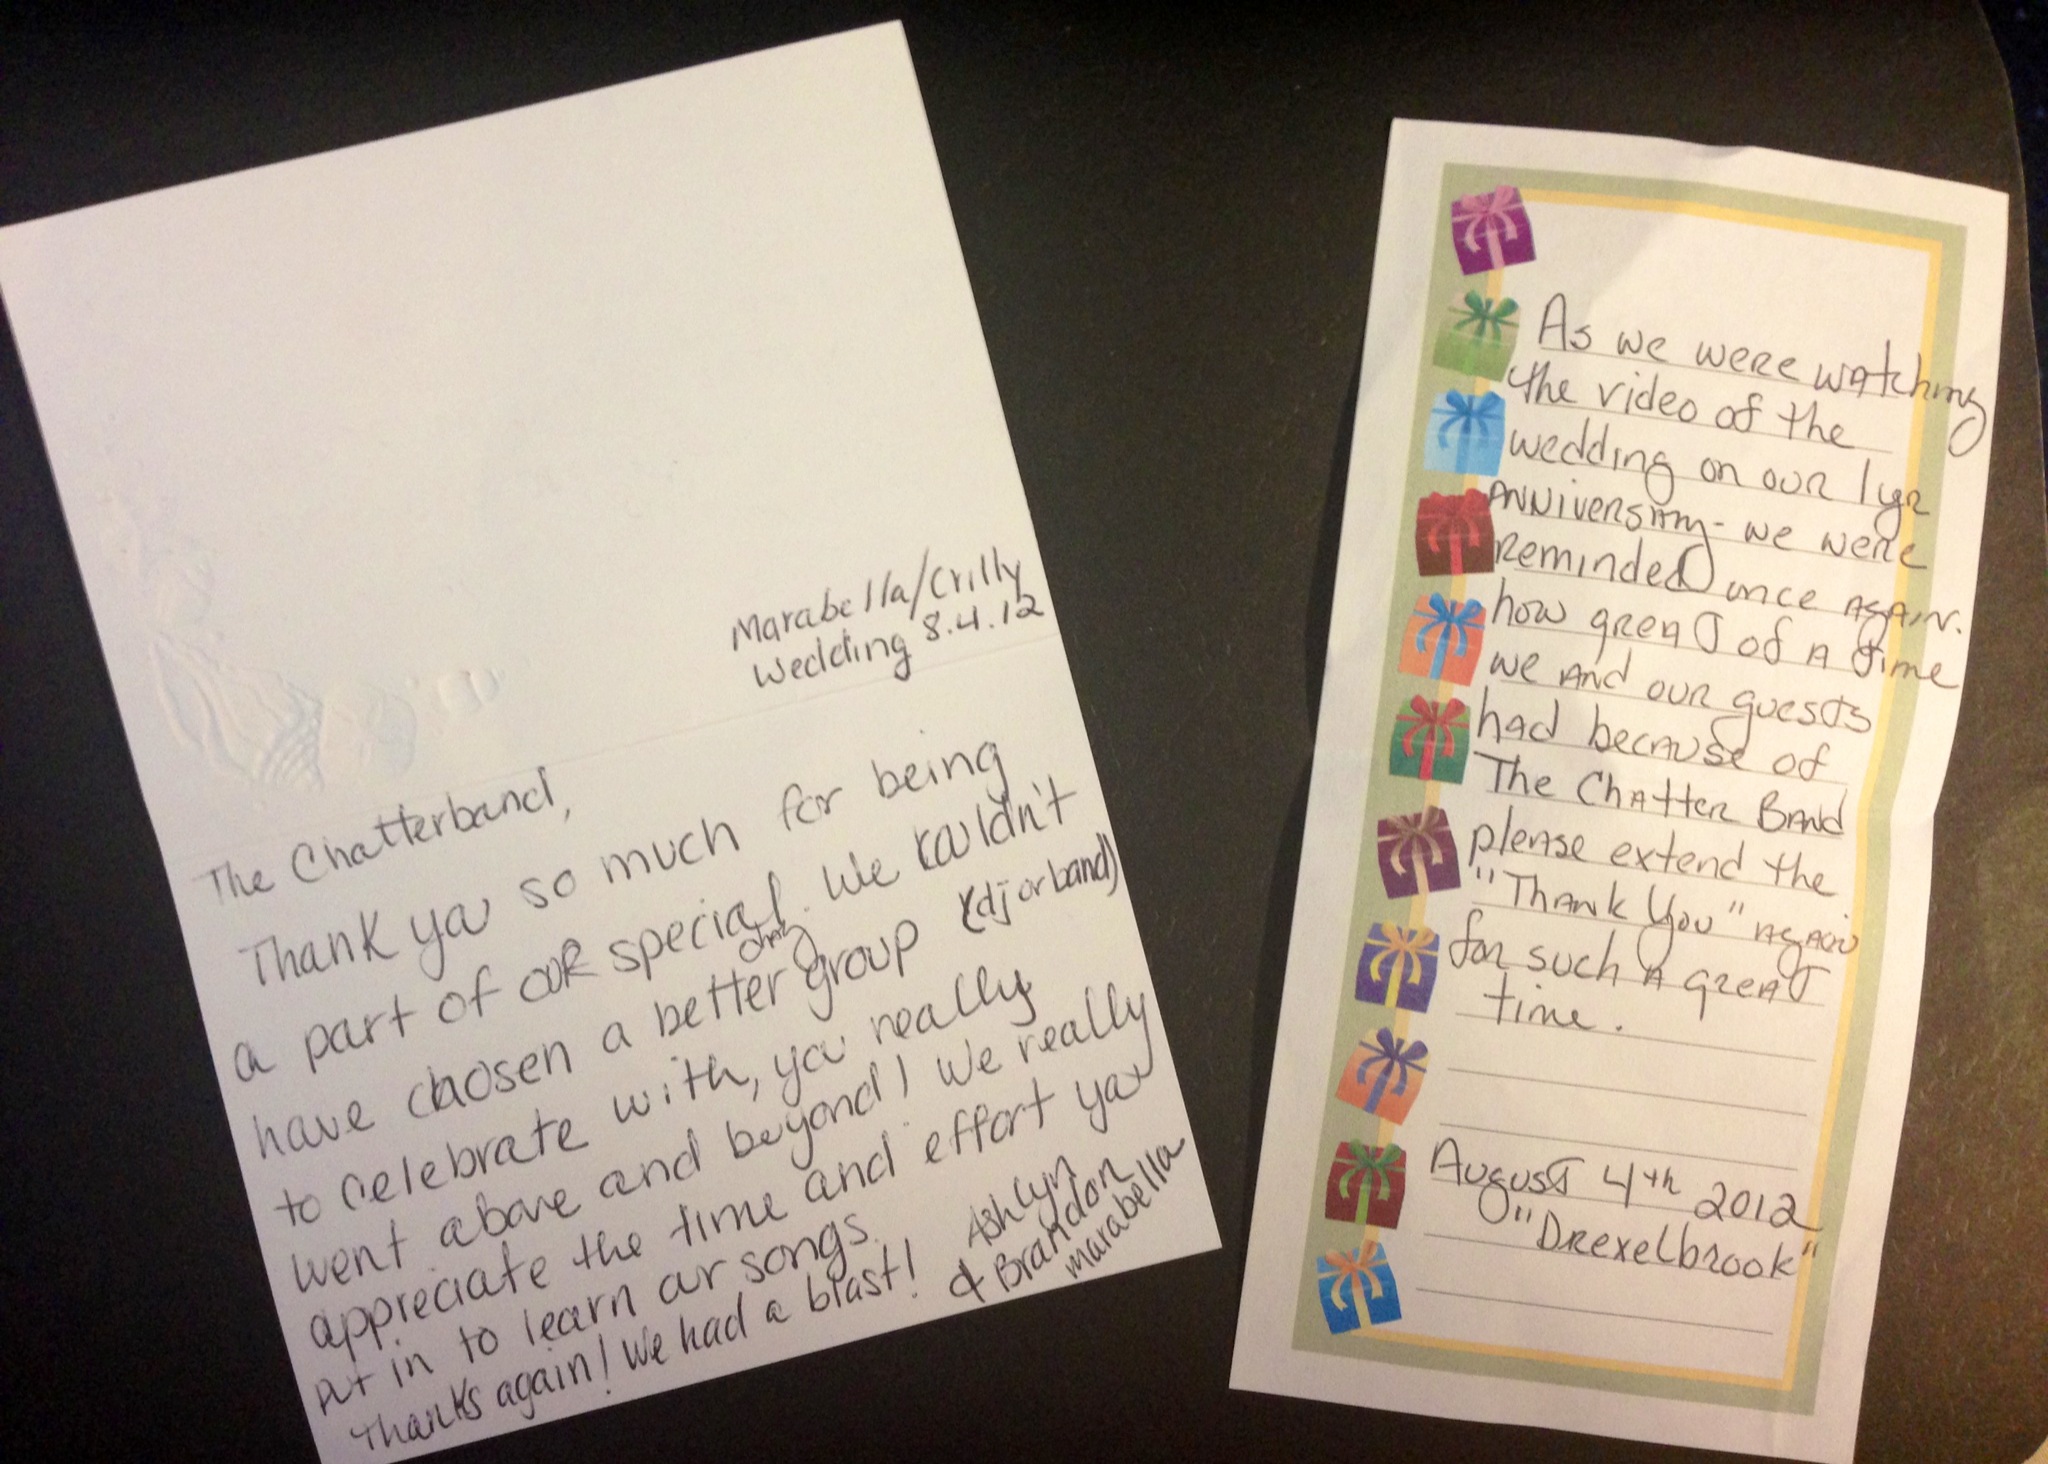 Marabella/Crilly
Wedding 8.4.12
The Chatterband,
Thank you so much for being
a part of our special day. We couldn't
have chosen a better group (dj or band)
to celebrate with, you really
went above and beyond! We really
appreciate the time and effort you
put in to learn our songs.
Thanks again! We had a blast!
Ashlyn
& Brandon
Marabella
As we were watching
the video of the
wedding on our 1yr
Anniversary - we were
reminded once again.
how great of a time
we and our guests
had because of
The Chatter Band
please extend the
"Thank You" again
for such a great
time.
August 4th 2012
"Drexelbrook"